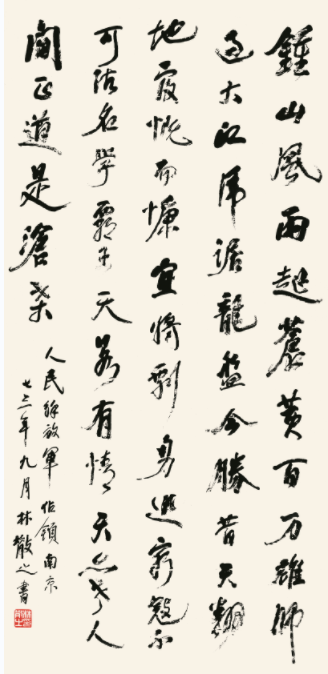 鍾山風雨起蒼黄百万雄師
過大江虎踞龍盤今勝昔天翻
地覆慨而慷宜將剩勇追窮寇不
可沽名學霸王天若有情天亦老人
間正道是滄桑
人民解放軍佔領南京
七三年九月林散之書